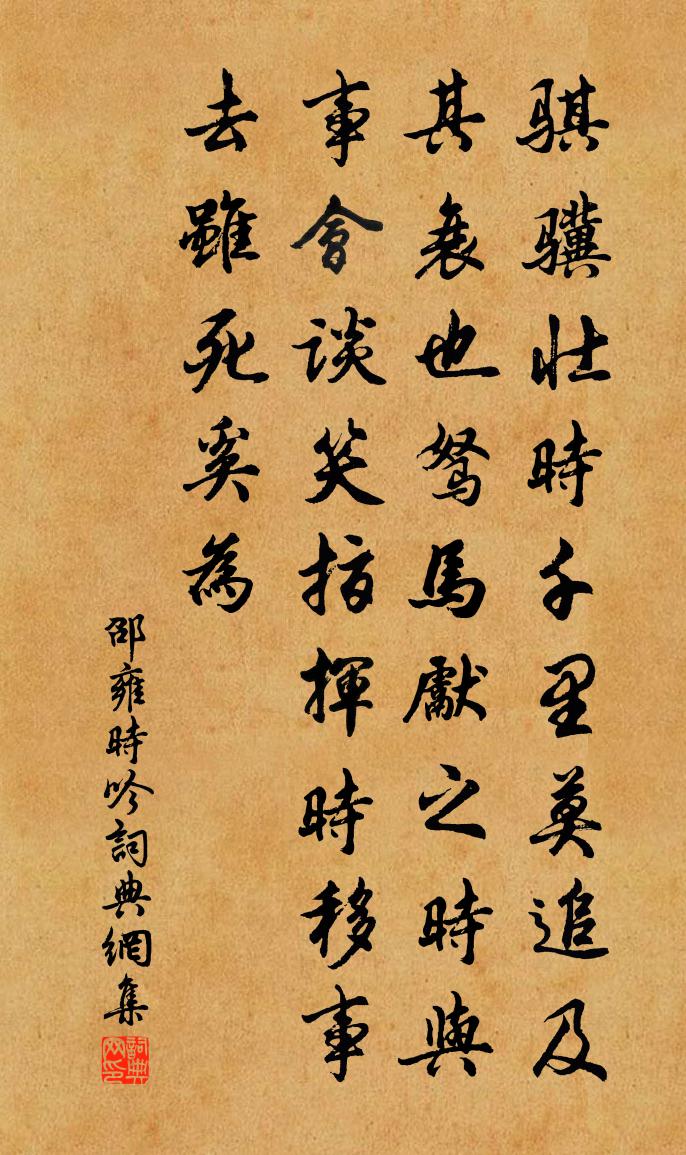 骐骥壮時千里莫追及
其衰也駑馬獻之時與
事會談笑指揮時移事
去雖死奚為
邵雍時吟詞典網集
詞典网印